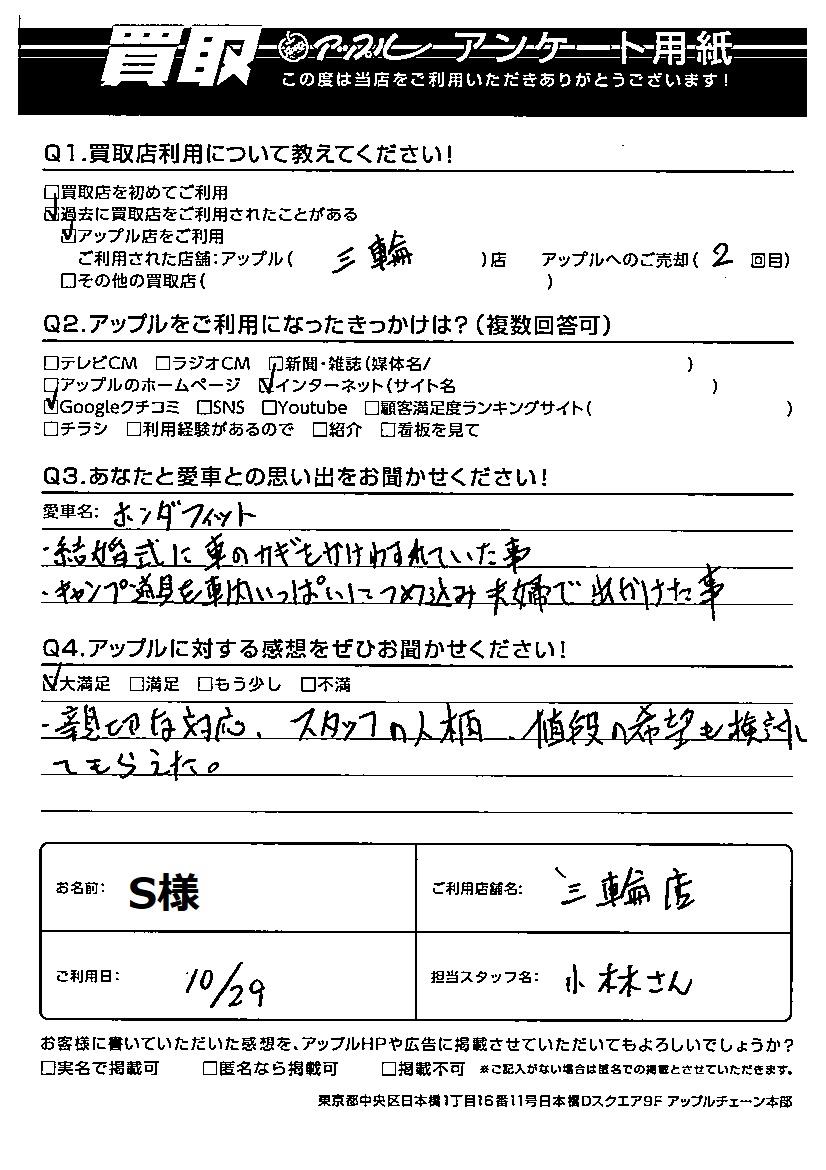 買取 アップル アンケート用紙
この度は当店をご利用いただきありがとうございます!
Q1.買取店利用について教えてください!
□買取店を初めてご利用
☑過去に買取店をご利用されたことがある
☑アップル店をご利用
ご利用された店舗:アップル( 三輪 )店 アップルへのご売却( 2 回目)
□その他の買取店( )
Q2.アップルをご利用になったきっかけは?(複数回答可)
□テレビCM □ラジオCM □新聞・雑誌(媒体名/ )
□アップルのホームページ ☑インターネット(サイト名 )
☑Googleクチコミ □SNS □Youtube □顧客満足度ランキングサイト( )
□チラシ □利用経験があるので □紹介 □看板を見て
Q3.あなたと愛車との思い出をお聞かせください!
愛車名: ホンダフィット
・結婚式に車のカギをかけわすれていた事
・キャンプ道具を車内いっぱいにつめ込み夫婦で出かけた事
Q4.アップルに対する感想をぜひお聞かせください!
☑大満足 □満足 □もう少し □不満
・親切な対応、スタッフの人柄、値段の希望も検討し
てもらえた。
お名前: S様 ご利用店舗名: 三輪店
ご利用日: 10/29 担当スタッフ名: 小林さん
お客様に書いていただいた感想を、アップルHPや広告に掲載させていただいてもよろしいでしょうか?
□実名で掲載可 □匿名なら掲載可 □掲載不可 ※ご記入がない場合は匿名での掲載とさせていただきます。
東京都中央区日本橋1丁目16番11号日本橋Dスクエア9F アップルチェーン本部